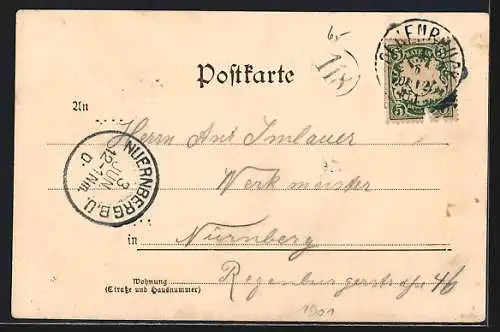 6,-
118
Postkarte
BAYERN
5 5
An
Herrn Ant Imlauer
NUERNBERG B.U.
3
JUN.
12-1 NM.
0.
Werkmeister
in Nürnberg
Wohnung
(Straße und Hausnummer)
Regensburgerstraße 46
1901